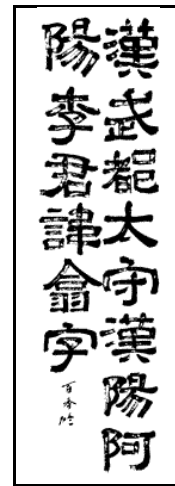 漢武都太守漢陽阿
陽李君諱翕字